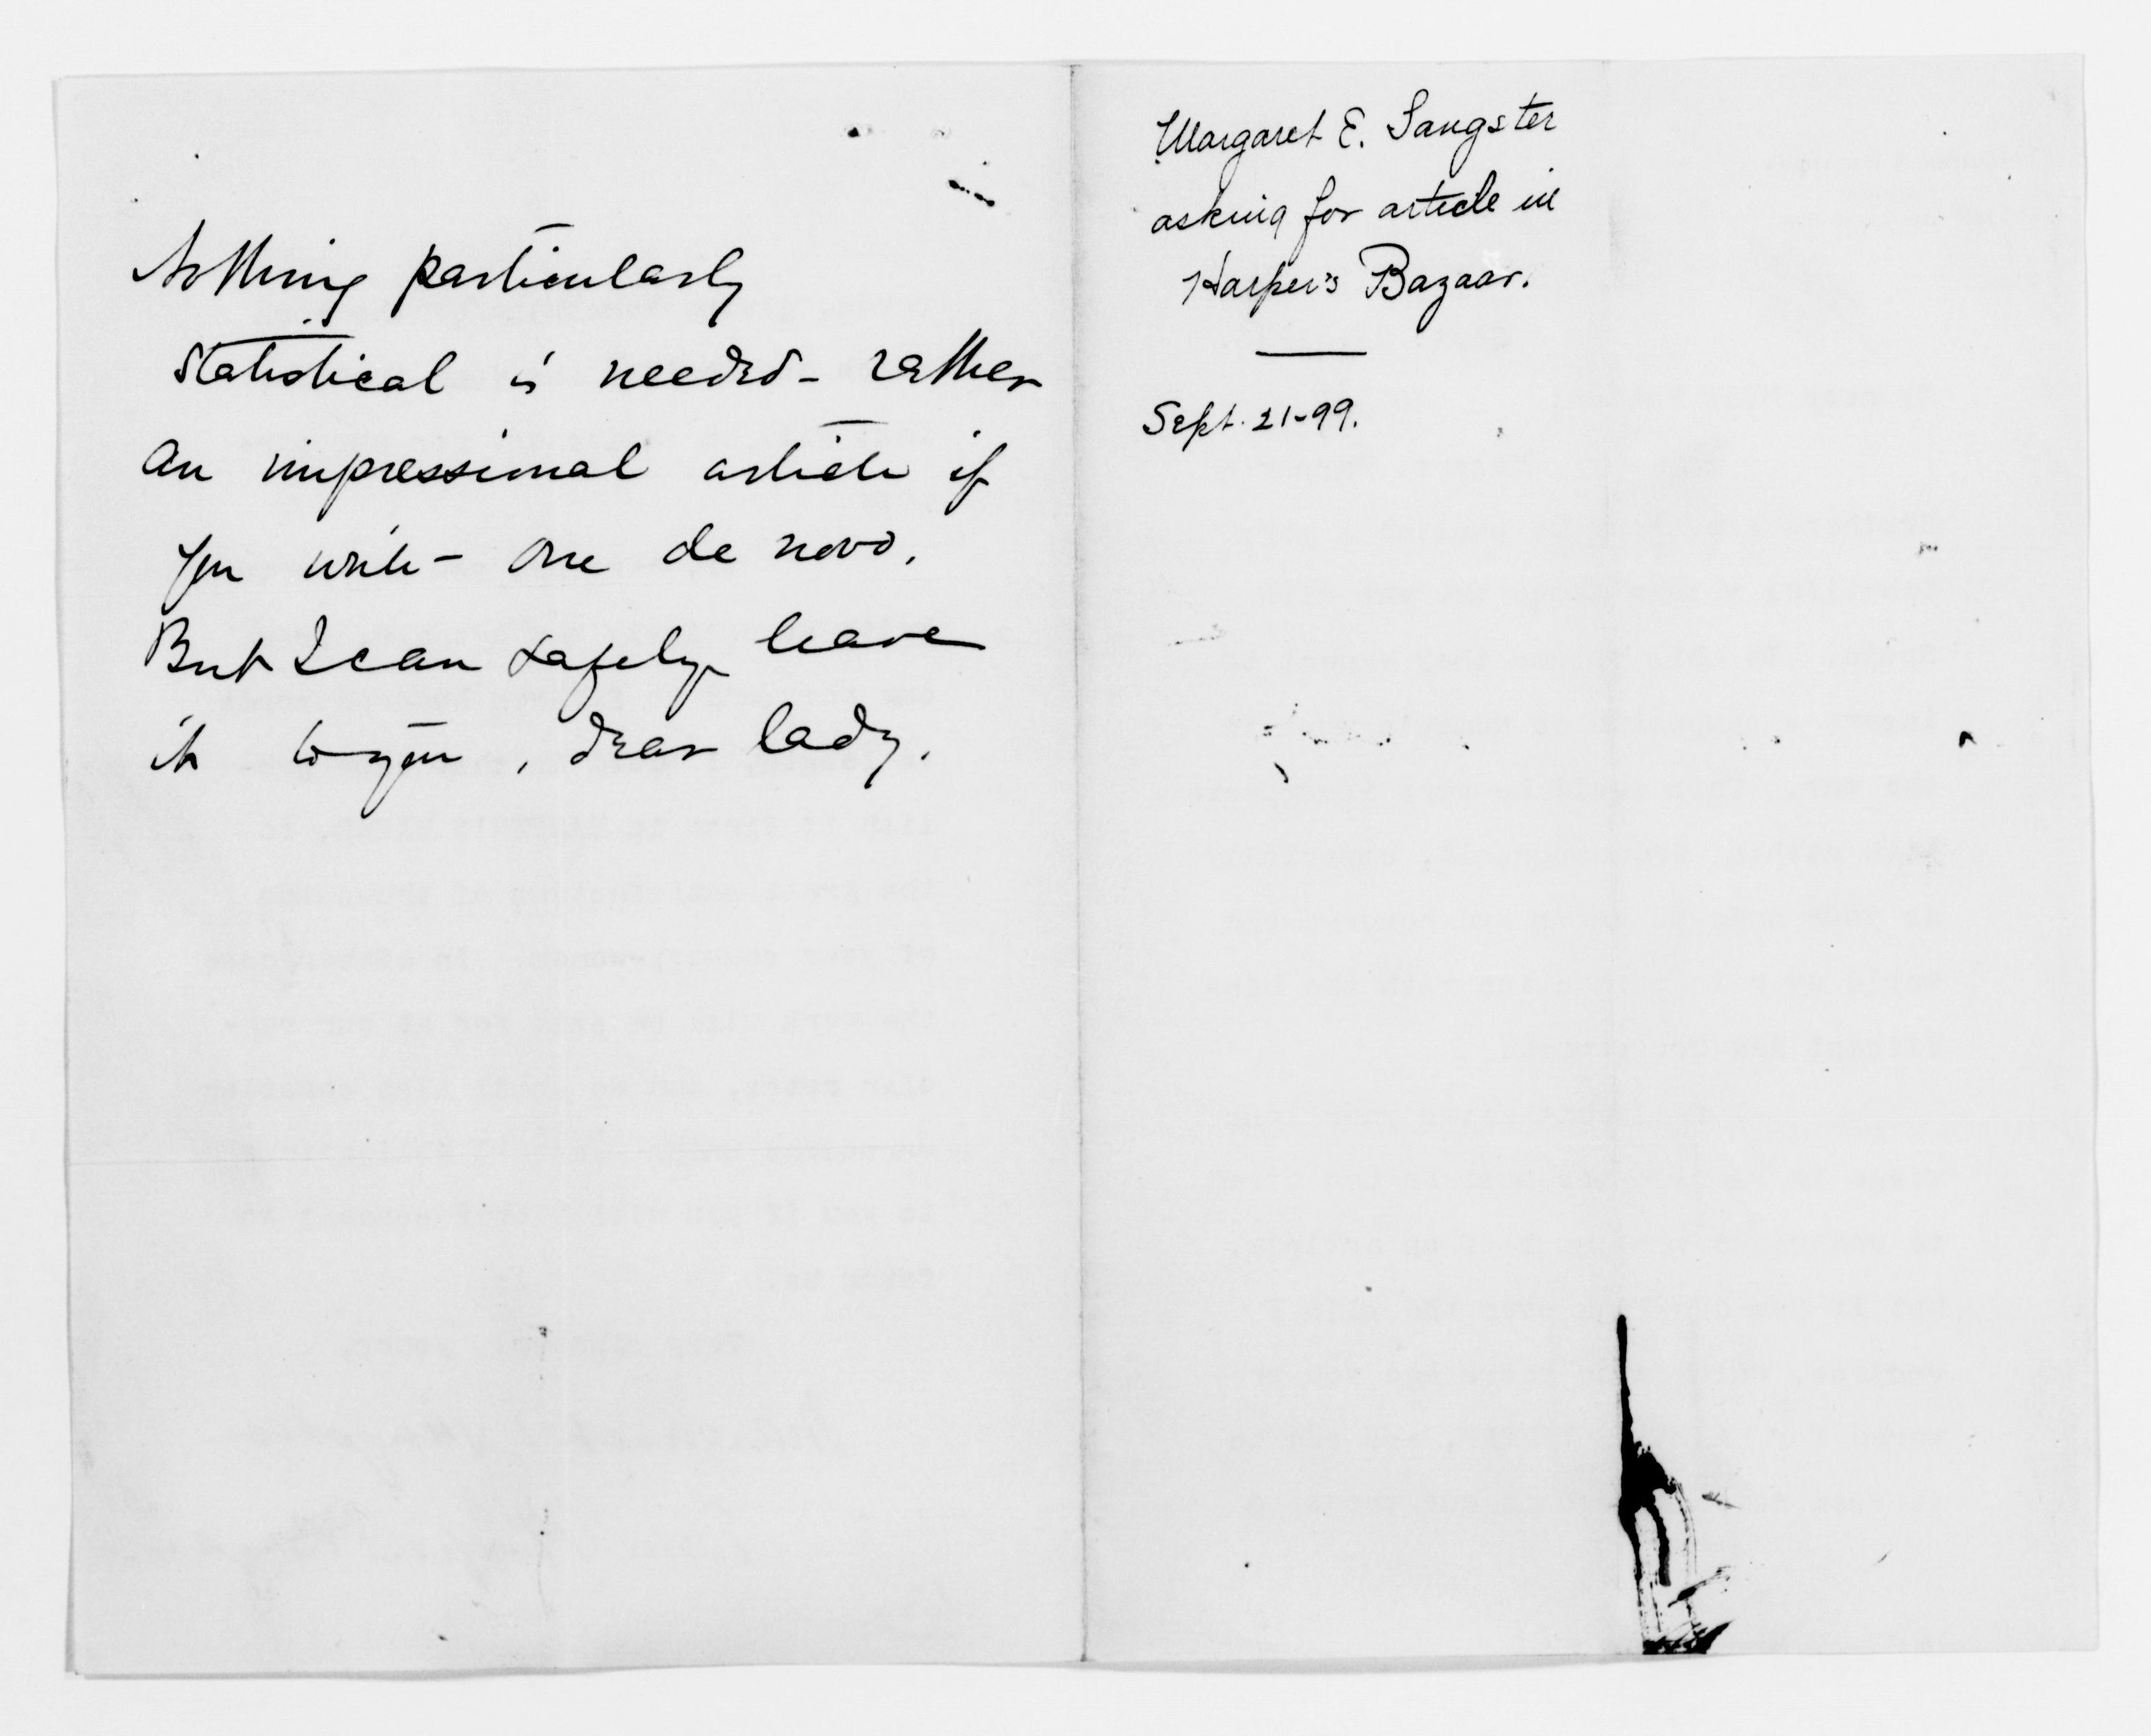 Nothing particularly
statistical is needed - rather
an impressional article if
you write - one de novo.
But I can safely leave
it to you, dear lady.
Margaret E. Sangster
asking for article in
Harper's Bazaar.
Sept. 21-99.